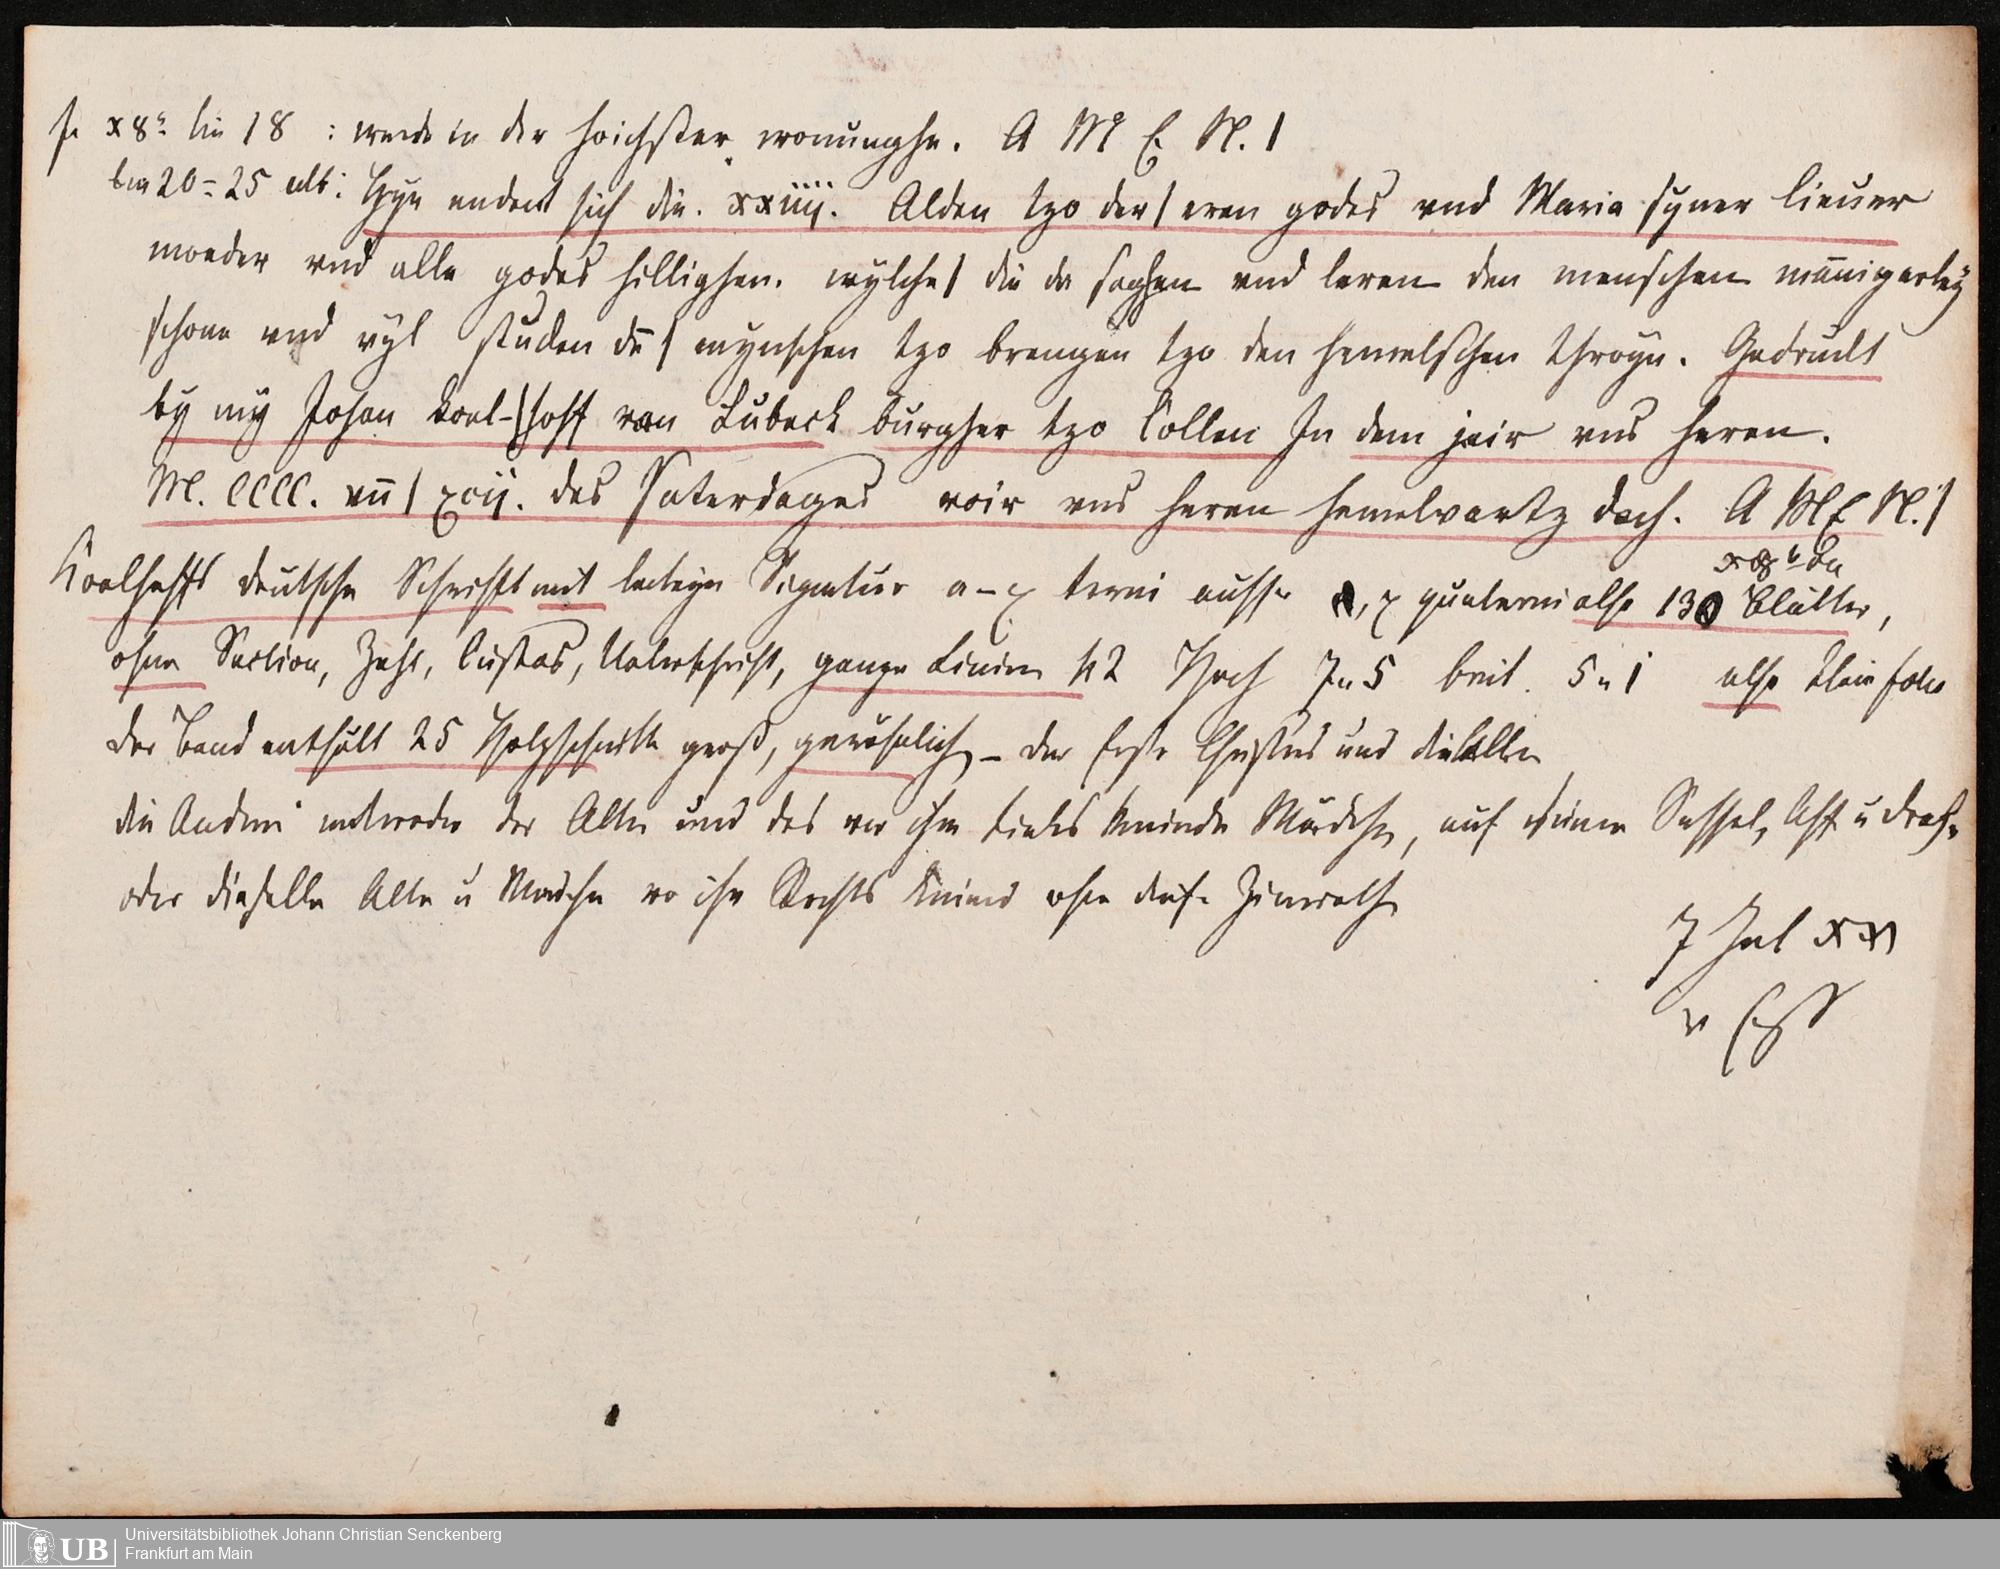 x8b lin 18 : werde in der hoichster wonunghe. A M E N. |
lin 20-25 alb: Hye endent sich die. xxiiij. Alden tzo der | eren godes vnd Maria syner lieuer
moeder vnd alle godes hillighen. wylche | die da saghen vnd leren den menschen mānigerley
schone vnd vyl studen dē | mynschen tzo brengen tzo den hemelschen throyn. Gedruckt
by my Johan Koel-|hoff van Lubeck burgher tzo Collen In dem jair vns heren.
M. CCCC. vn̄ | xcij. des Saterdages voir vns heren hemelvartz dach. A M E N. |
x8b leer
Koelhoffs deutsche Schrift mit lateyn Signatur a-x terni ausser a, x quaterni also 130 Blätter,
ohne Section, Zahl, Custos, Ueberschrift, ganze Linien 42 Hoch 7" 5 breit 5" 1 also klein folio
der Band enthält 25 Holzschnitte groß, gewöhnlich - der Erste Christus und die Alten
die Andern entweder der Alte und das vor ihm links knieende Mädchen, auf seinem Sessel, Aff u Drach
oder dieselbe Alte u Mädchen wo ihr Rechts kniend ohne diese Zierrath
7 Jul xxv
v Eß
Universitätsbibliothek Johann Christian Senckenberg
Frankfurt am Main
UB